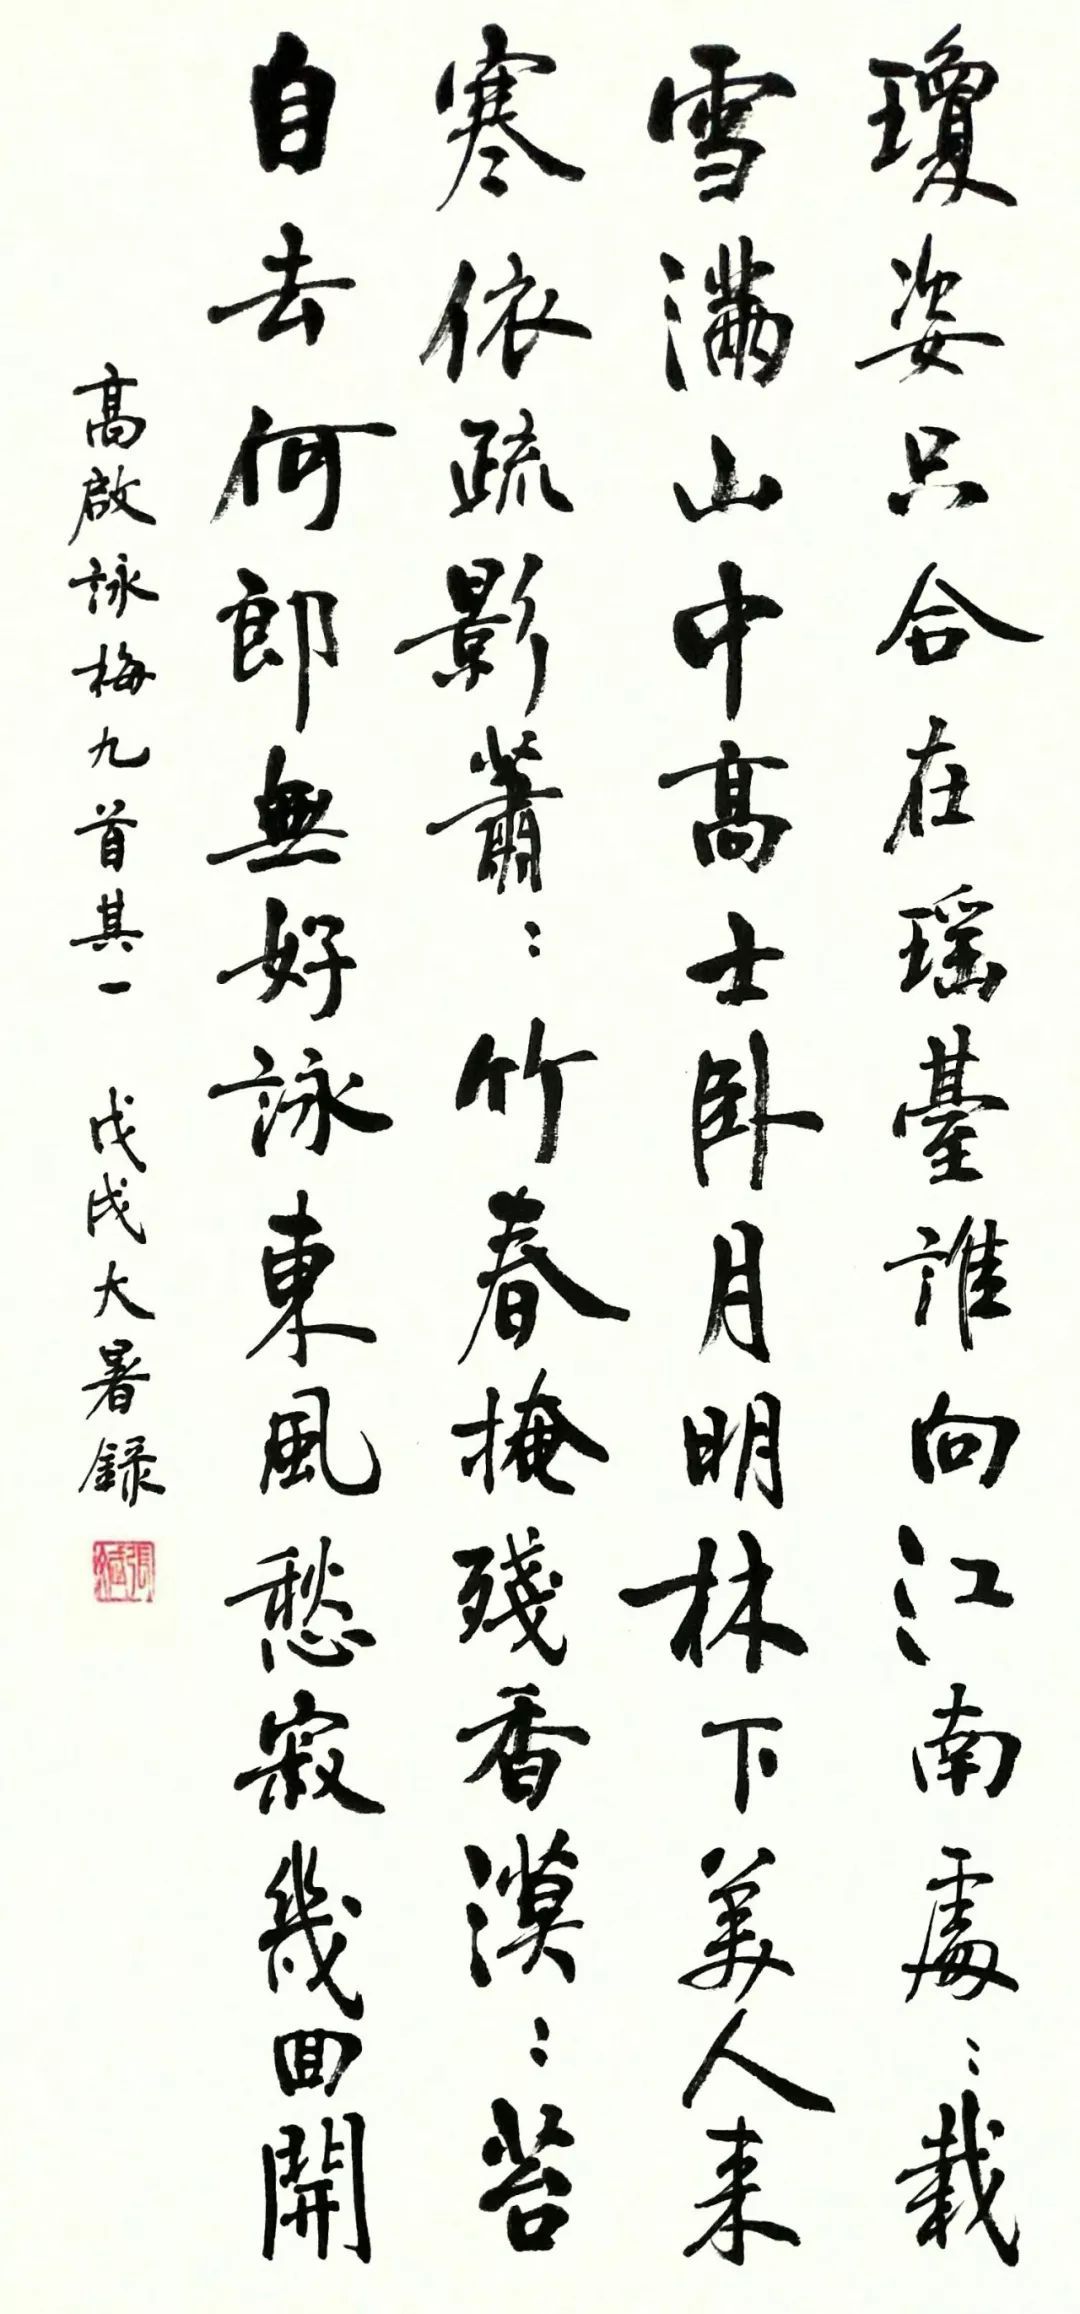 瓊姿只合在瑶臺誰向江南處〻栽
雪滿山中高士卧月明林下美人来
寒依疏影蕭〻竹春掩殘香漠〻苔
自去何郎無好詠東風愁寂幾回開
高啟詠梅九首其一 戊戌大暑錄